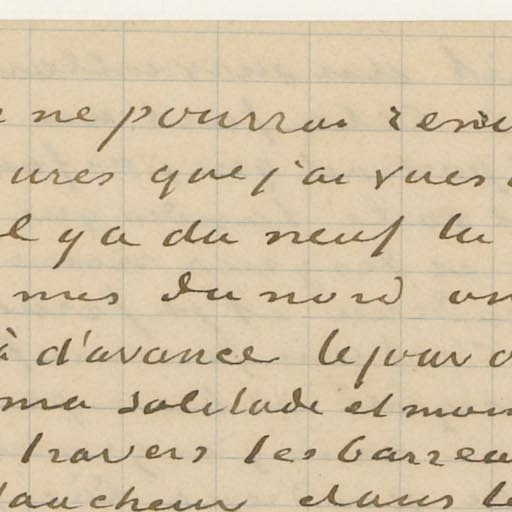 ne pourrai reven
ures que j'ai vues
il y a du neuf tu
mes du nord on
à d'avance le jour o
ma solitude et mon
travers les barreau
faucheur dans le